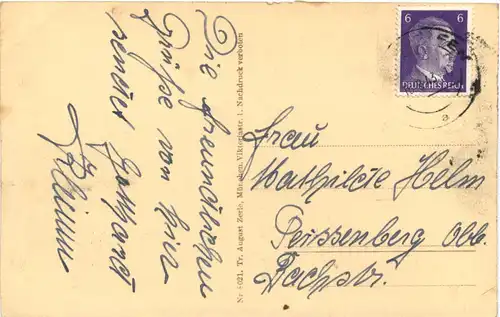 Die freundlichsten
Grüße von hier
sendet
Nr. 8021. Tr. August Zerle, München, Viktoriastr. 1. Nachdruck verboten
6 6
DEUTSCHES REICH
Frau
Mathilde Helm
Peissenberg Obb.
Dachstr.